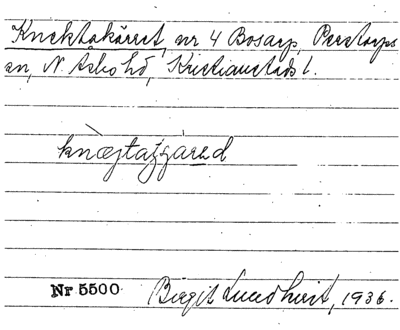 Knektakärret, nr 4 Bosarp, Perstorps
sn, N. Åsbo hd, Kristianstads l.
knægtaʒgared
Nr 5500 Birgit Lundkvist, 1936.